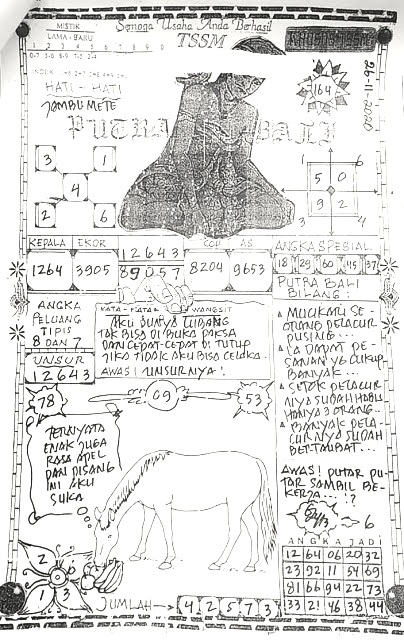 MISTIK
LAMA - BARU
1 2 3 4 5 6 7 8 9 0
Semoga Usaha Anda Berhasil
TSSM
26-11-2020
HATI - HATI
JAMBU METE
164
PUTRA BALI
3 1
4
2 6
1 6
5 0
9 2
3 4
KEPALA EKOR
1264 3905
12643
89057
COP AS
8204 9653
ANGKA SPESIAL
18 29 60 45 37
PUTRA BALI
BILANG :
ANGKA
PELUANG
TIPIS
8 DAN 7
UNSUR
12643
KATA - KATA WANGSIT
AKU PUNYA LUBANG
TAK BISA DI BUKA PAKSA
DAN CEPAT-CEPAT DI TUTUP
JIKA TIDAK AKU BISA CELAKA.
AWAS! UNSURNIYA!
MUCIKARI SE-
ORANG PELACUR
PUSING...
IA DAPAT PE-
SANAN YG CUKUP
BANYAK...
SETOK PELACUR
NIYA SUDAH HABIS
HANYA 3 ORANG..
BANYAK PELA-
CURNYA SUDAH
BERTAUBAT...
AWAS! PUTAR PU-
TAR SAMBIL BE-
KERJA...!?
6
78
09
53
TERNYATA
ENAK JUGA
RASA APEL
DAN PISANG
INI AKU
SUKA
2
1 3
ANGKA JADI
12 64 06 20 32
23 92 11 54 69
81 66 94 22 73
33 21 46 38 44
JUMLAH
4 2 5 7 3